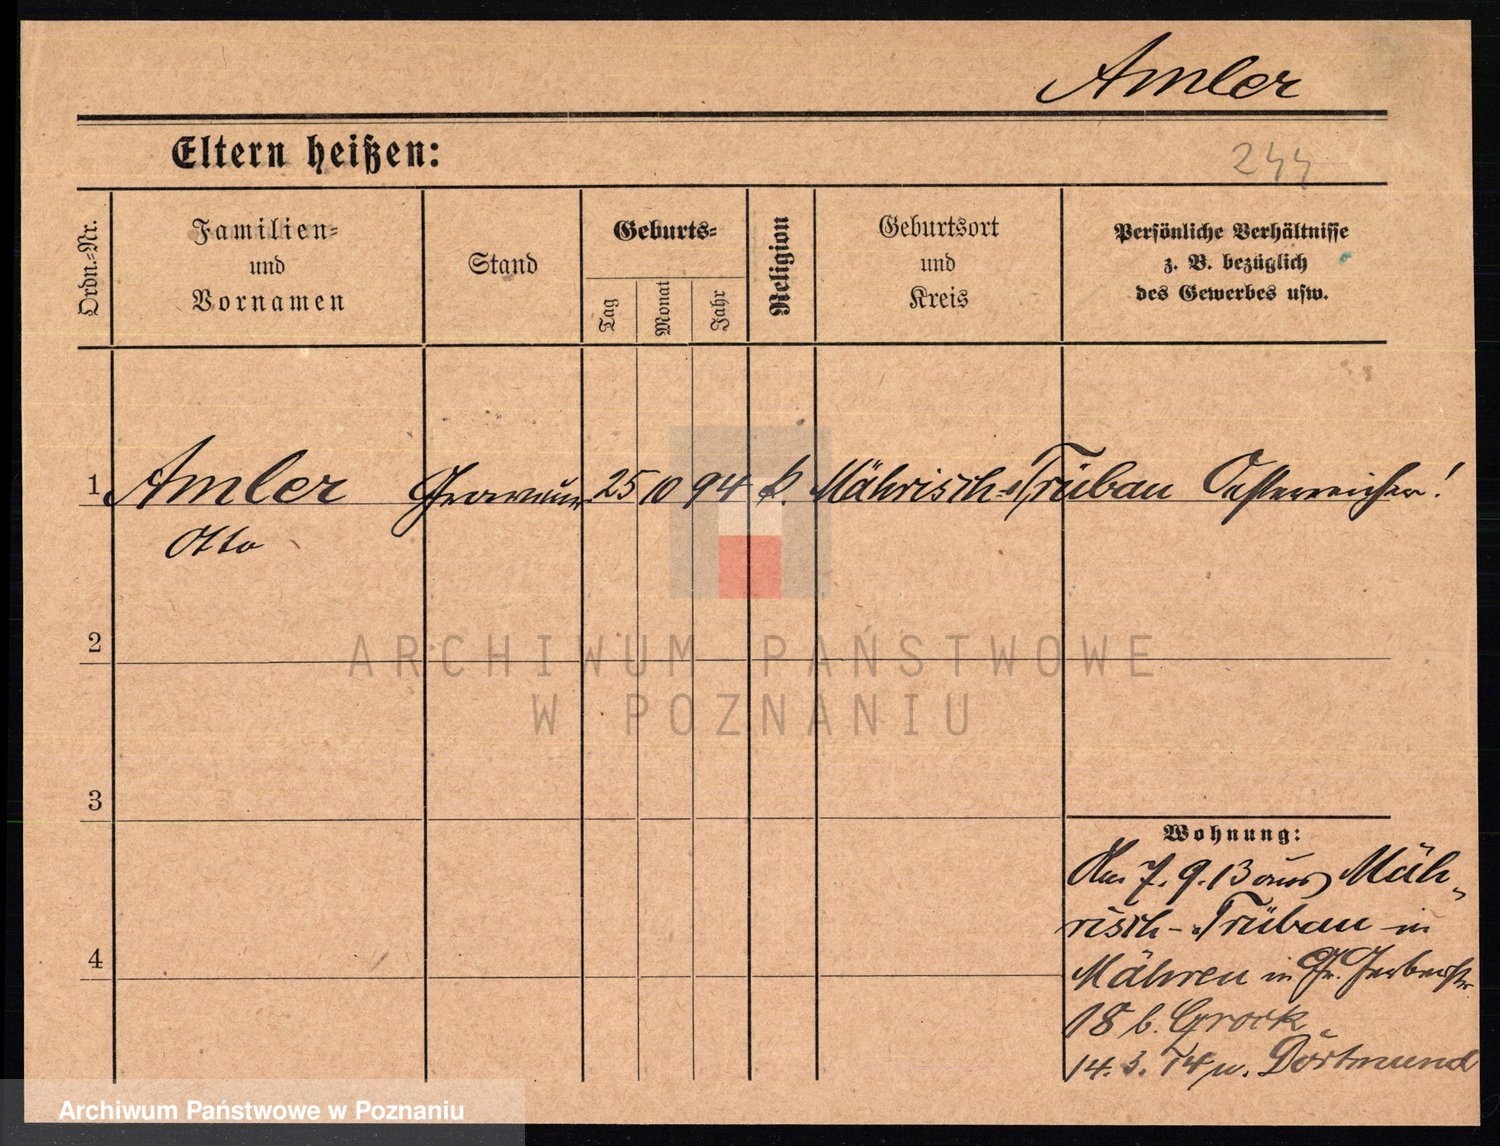 Amler
Eltern heißen:
244
Ordn.-Nr.
Familien-
und
Vornamen
Stand
Geburts-
Tag
Monat
Jahr
Religion
Geburtsort
und
Kreis
Persönliche Verhältnisse
z. B. bezüglich
des Gewerbes usw.
1 Amler 25 10 94 k. Mährisch-Trübau Oesterreicher!
Otto
2
ARCHIWUM PAŃSTWOWE
W POZNANIU
3
Wohnung:
Am 7. 9. 13 aus Mäh-
risch-Trübau in
Mähren in Gr. Gerberstr
18 b. Grock
4
14. 3. 14 n. Dortmund
Archiwum Państwowe w Poznaniu